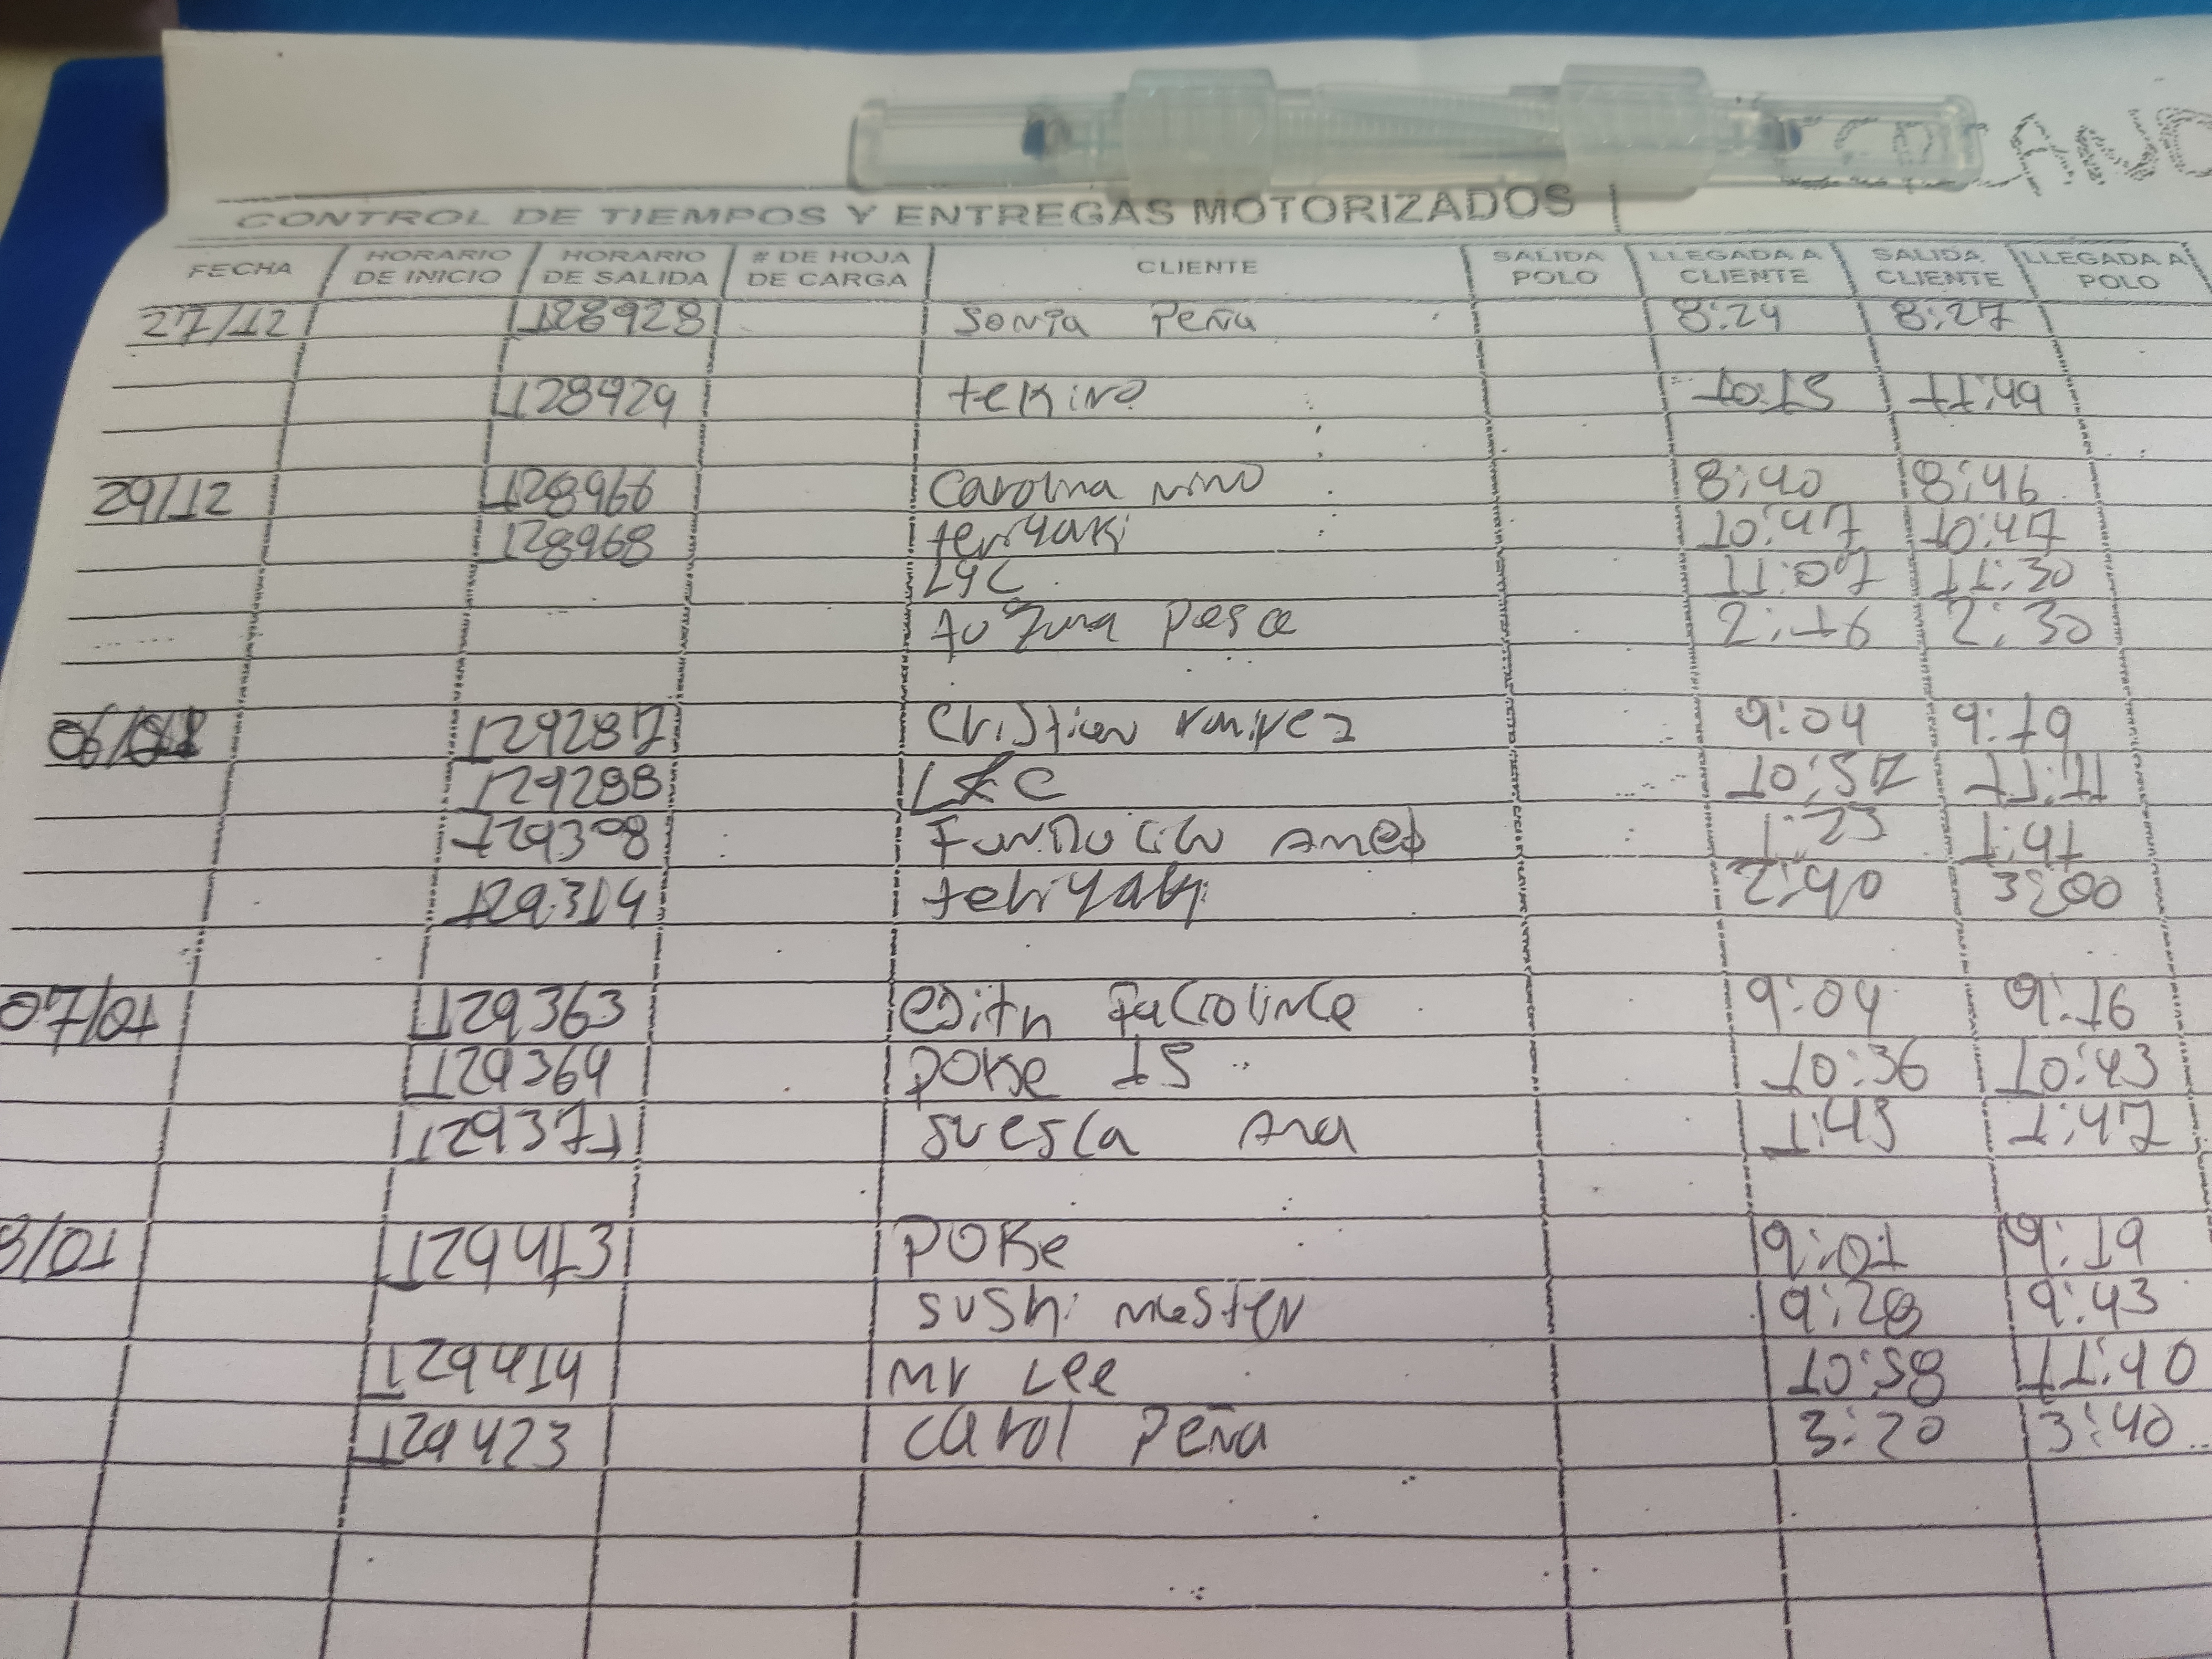 CONTROL DE TIEMPOS Y ENTREGAS MOTORIZADOS
FECHA HORARIO DE INICIO HORARIO DE SALIDA # DE HOJA DE CARGA CLIENTE SALIDA POLO LLEGADA A CLIENTE SALIDA CLIENTE LLEGADA A POLO
27/12 128928 Sonia Peña 8:24 8:27
128929 tekino 10:15 11:49
29/12 128966 Carolina nino 8:40 8:46
128968 teriyaki 10:47 10:47
LYC 11:07 11:30
Pesca 2:16 2:30
129287 Cristian ramirez 9:04 9:19
129288 LYC 10:57 11:11
129308 1:23 1:41
129314 teriyaki 2:40 3:00
07/01 129363 edith 9:04 9:16
129364 POKe 15 10:36 10:43
129371 suesca Ana 1:43 1:47
129413 POKe 9:01 9:19
sushi master 9:28 9:43
129414 Mr Lee 10:58 11:40
129423 Carol Peña 3:20 3:40